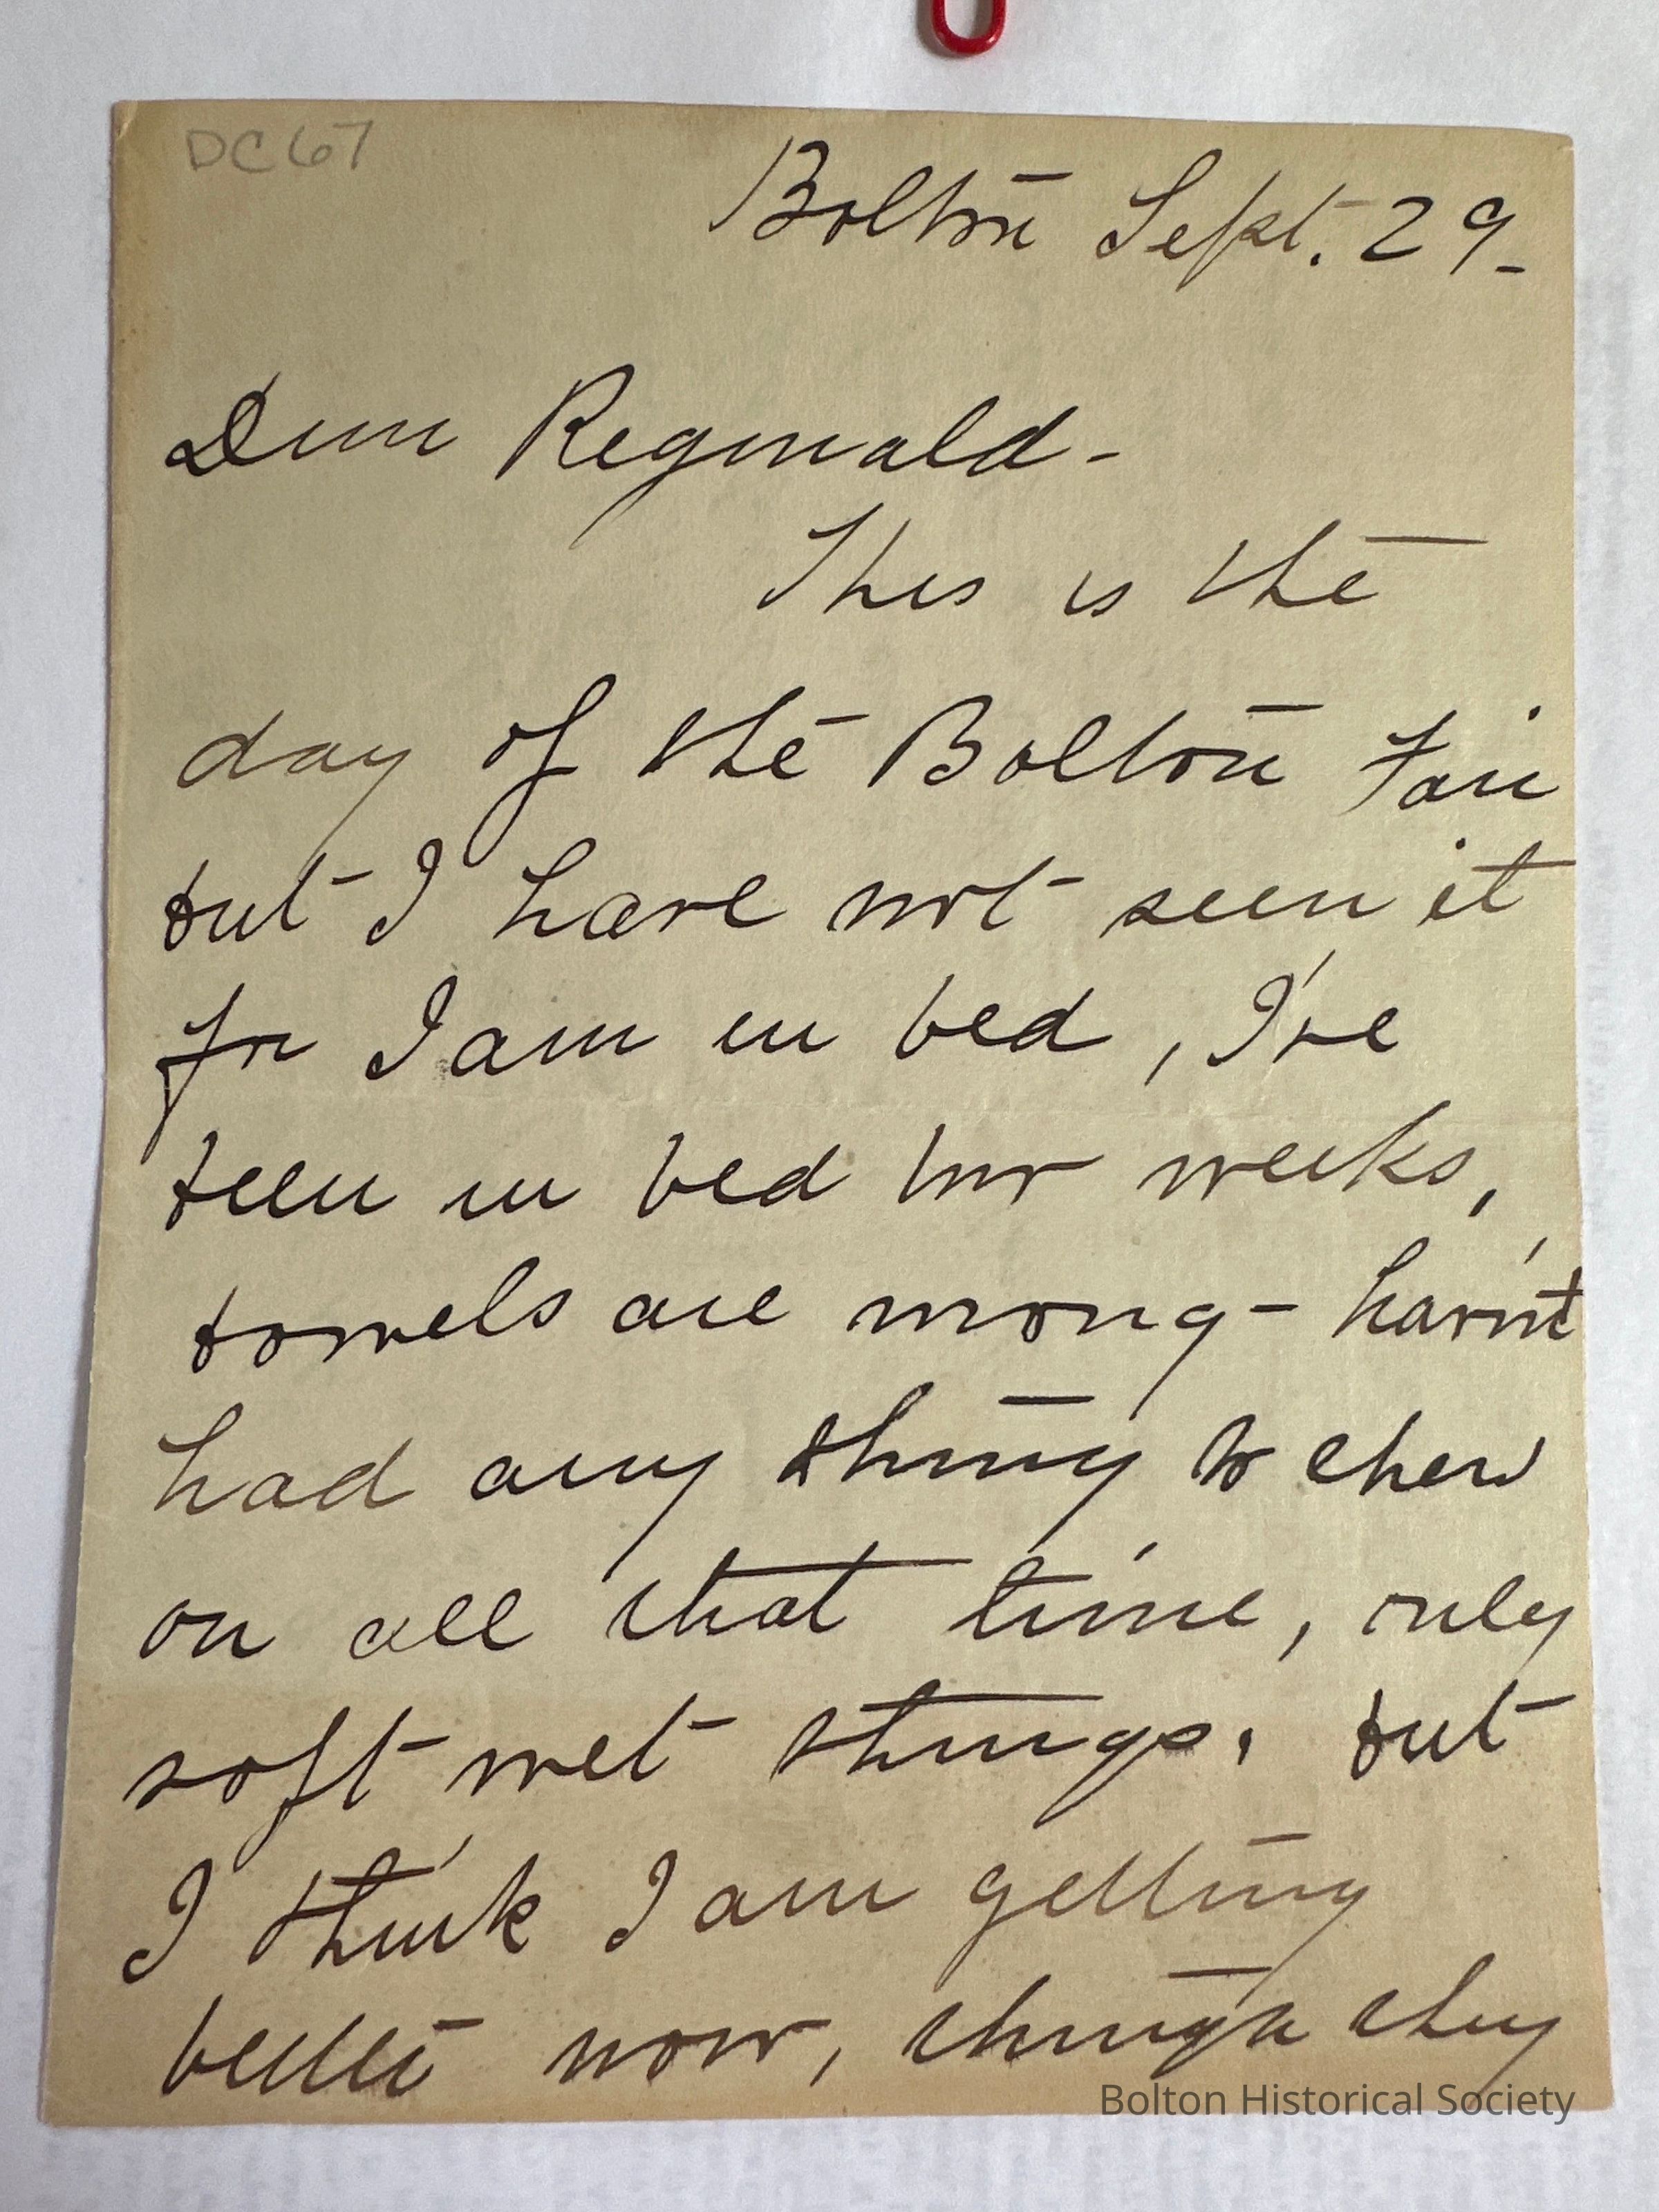 DC67
Bolton Sept. 29-
Dear Reginald-
This is the
day of the Bolton Fair
but I have not seen it
for I am in bed, I've
been in bed two weeks,
bowels are wrong- hav'nt
had any thing to chew
on all that time, only
soft wet things. but
I think I am getting
better now, though they
Bolton Historical Society